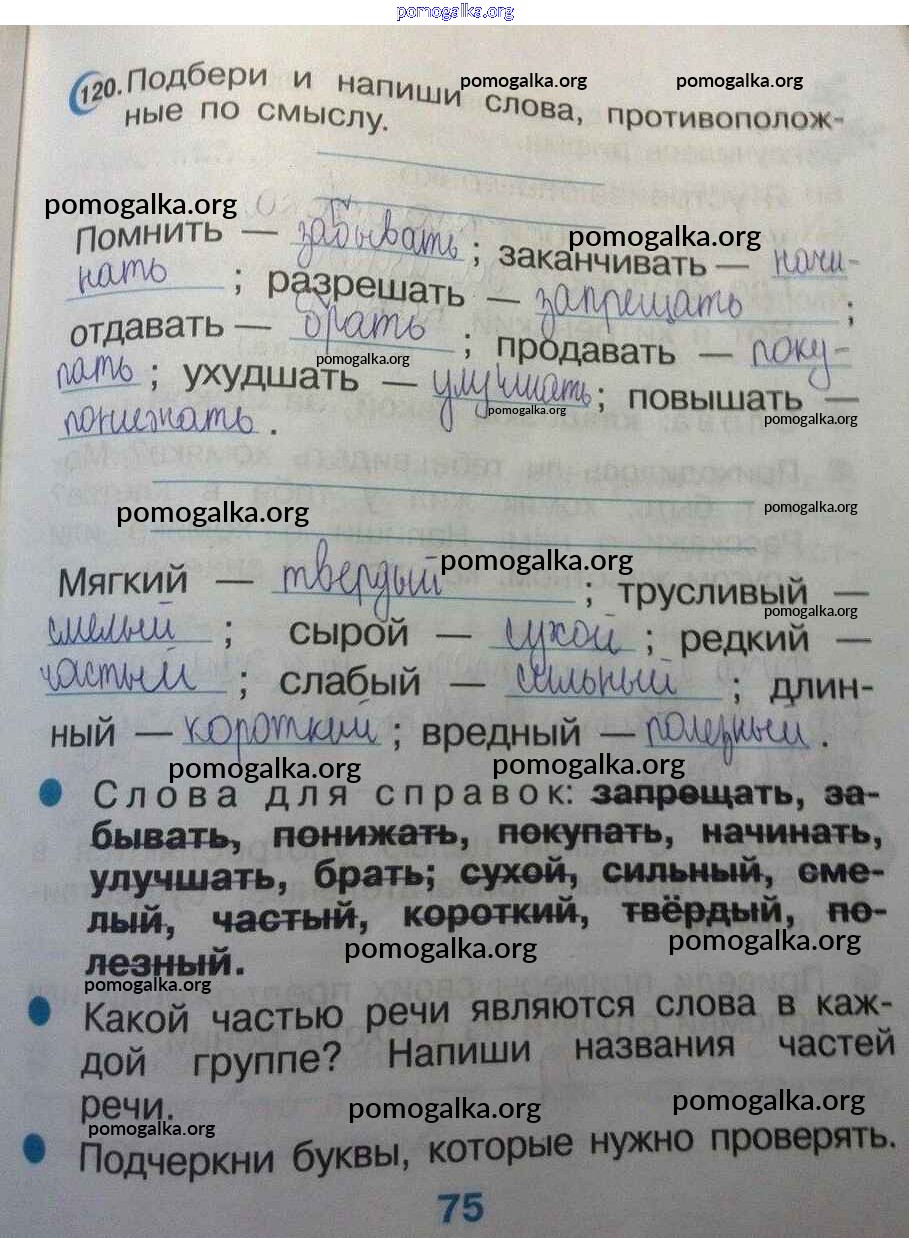 pomogalka.org
120. Подбери и напиши слова, противополож-
pomogalka.org pomogalka.org
ные по смыслу.
pomogalka.org
Помнить — забывать ; заканчивать — начи-
pomogalka.org
нать ; разрешать — запрещать ;
отдавать — брать ; продавать — поку-
pomogalka.org
пать ; ухудшать — улучшать ; повышать —
pomogalka.org pomogalka.org
понижать .
pomogalka.org pomogalka.org
Мягкий — твердый ; трусливый —
pomogalka.org pomogalka.org
смелый ; сырой — сухой ; редкий —
частый ; слабый — сильный ; длин-
ный — короткий ; вредный — полезный .
pomogalka.org pomogalka.org
Слова для справок: запрещать, за-
бывать, понижать, покупать, начинать,
улучшать, брать; сухой, сильный, сме-
лый, частый, короткий, твёрдый, по-
pomogalka.org pomogalka.org
лезный.
pomogalka.org
Какой частью речи являются слова в каж-
дой группе? Напиши названия частей
речи.
pomogalka.org pomogalka.org pomogalka.org
Подчеркни буквы, которые нужно проверять.
75